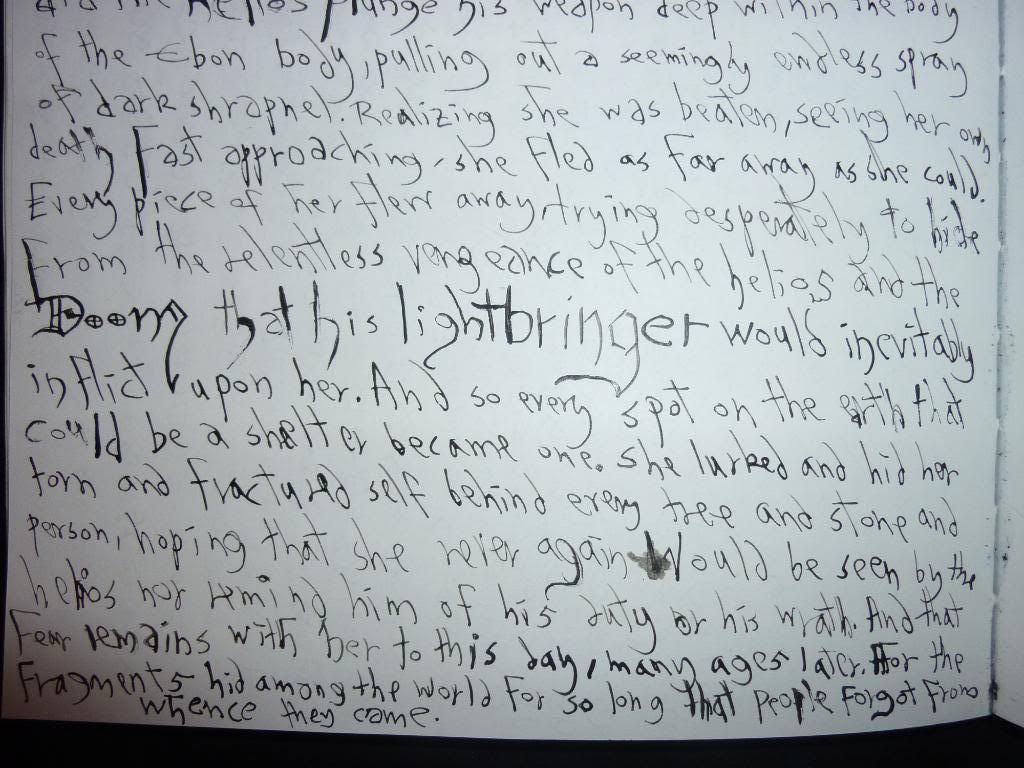 did the helios plunge his weapon deep within the body
of the Ebon body, pulling out a seemingly endless spray
of dark shrapnel. Realizing she was beaten, seeing her own
death Fast approaching, she fled as far away as she could.
Every piece of her flew away, trying desperately to hide
From the relentless vengeance of the helios and the
Doom that his lightbringer would inevitably
inflict upon her. And so every spot on the earth that
could be a shelter became one. She lurked and hid her
torn and fractured self behind every tree and stone and
person, hoping that she never again Would be seen by the
helios nor remind him of his duty or his wrath. And that
Fear remains with her to this day, many ages later. For the
Fragments hid among the world For so long that people Forgot From
whence they came.